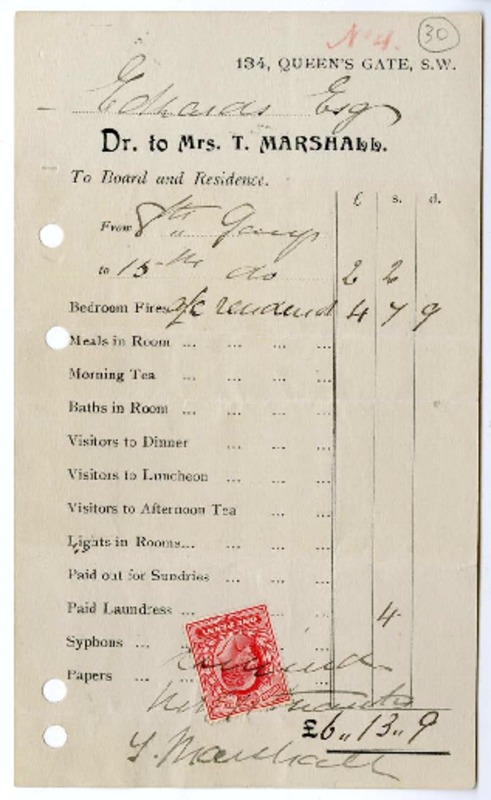 No 4. 30
134, QUEEN'S GATE, S.W.
Edwards Esq
Dr. to Mrs. T. MARSHALL.
To Board and Residence.
£ s. d.
From 8th
to 15th do 2 2
Bedroom Fires a/c rendered 4 7 9
Meals in Room ... ... ... ...
Morning Tea ... ... ...
Baths in Room ... ... ... ...
Visitors to Dinner ... ...
Visitors to Luncheon ... ... ...
Visitors to Afternoon Tea ... ...
Lights in Rooms... ... ... ...
Paid out for Sundries ... ... ...
Paid Laundress ... 4
Syphons ...
Papers ... ...
ONE PENNY
with thanks
£6 " 13 " 9
T. Marshall